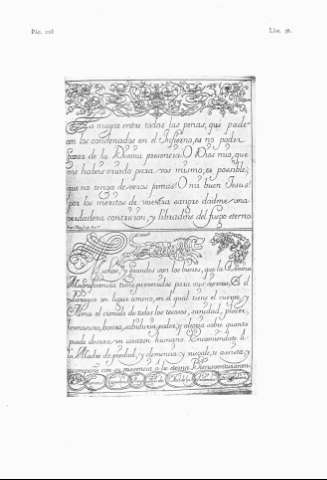 Pág. 208
Lám. 96.
La mayor entre todas las penas, que pade-
cen los condenados en el Infierno, es no poder
gozar de la Divina presencia. O Dios mio, que
me habeis criado para vos mismo; es posible,
que no tengo de veros jamas! O mi buen Jesus!
por los meritos de vuestra sangre dadme una
verdadera contricion, y libradme del fuego eterno.
Muchos, y grandes son los bienes, que la Divina
tiene prevenidos para sus El
Parayso es lugar ameno, en el qual tiene el cuerpo, y
Alma el cumulo de todos los tesoros, sanidad, placer,
hermosura, honra, sabiduria, poder, y alegria sobre quanto
puede desear un corazon humano. Encomiendate á
la Madre de piedad, y clemencia, y ruegale, te asista, y
con su presencia á la eterna Bienaventuranza.